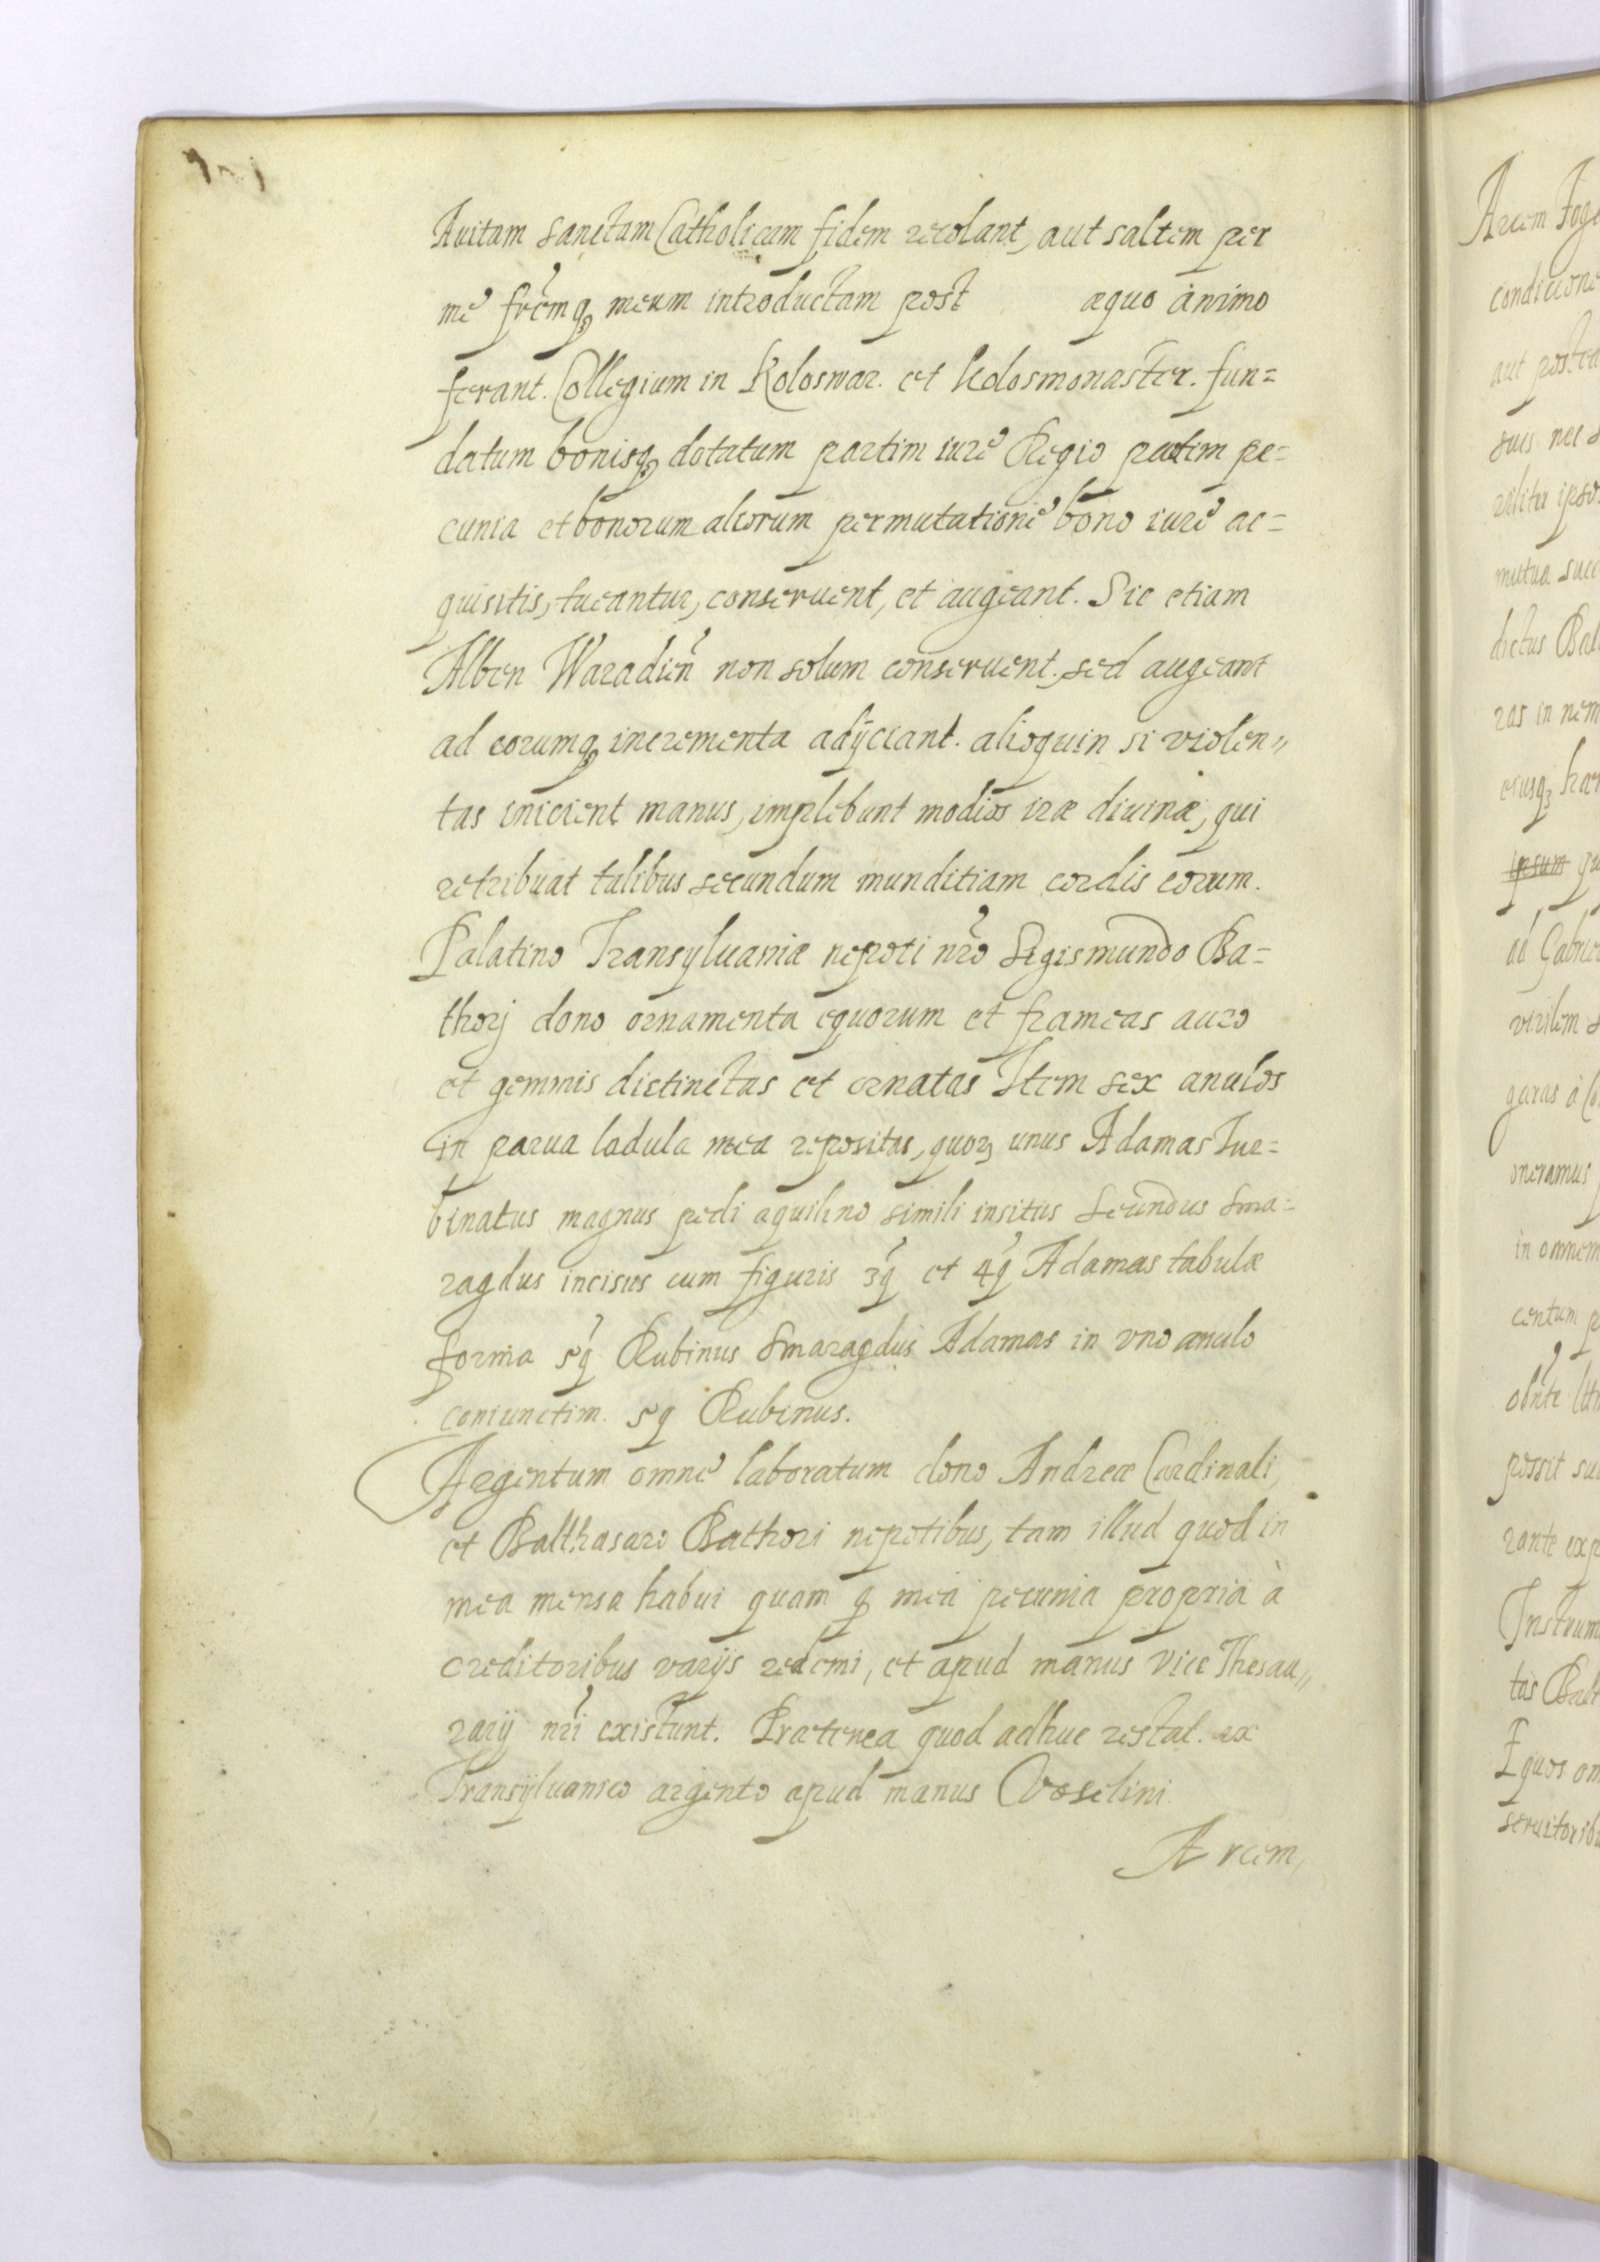 Auitam sanctam Catholicam fidem recolant, aut saltem per
me frēmq₃ meum introductam post aequo animo
ferant. Collegium in Koloswar. et Kolosmonaster. fun=
datum bonisq₃ dotatum partim iure Regio partim pe=
cunia et bonorum aliorum permutatione bono iure ac=
quisitis, tueantur, conseruent, et augeant. Sic etiam
Alben Waradien̄ non solum conseruent, sed augeant
ad eorumq₃ incrementa adijciant. alioquin si violen„
tas inicient manus, implebunt modios irae diuinae, qui
retribuat talibus secundum munditiam cordis eorum.
Palatino Transyluaniae nepoti nr̄o Sigismundo Ba=
thorj dono ornamenta equorum et frameas auro
et gemmis distinctas et ornatas Item sex anulos
in parua ladula mea repositas, quor₃ unus Adamas Tur=
binatus magnus pedi aquilino simili insitus Secundus Sma=
ragdus incisus cum figuris 3q̄ et 4q̄ Adamas tabulae
forma 5q̄ Rubinus Smaragdus Adamas in vno anulo
coniunctim. 5q Rubinus.
Argentum omne laboratum dono Andreae Cardinali,
et Balthasaro Bathori nepotibus, tam illud quod in
mea mensa habui quam q mea pecunia propria à
creditoribus varijs redemi, et apud manus Vice Thesau„
rarij nr̄i existunt. Praeterea quod adhuc restat. ex
Transyluanico argento apud manus Voselini
Arcem,
Arcem Foga
condicione
aut postea
suis nec
militer ipso
mutua succ
dictus Bal
ras in nem
eiusq₃ hae
ipsum qu
ad Gabrie
virilem
garas à Co
oneramus
in omnem
centum p
possit su
rante exp
Instrum
tas Balt
Equos om
seruitoribu